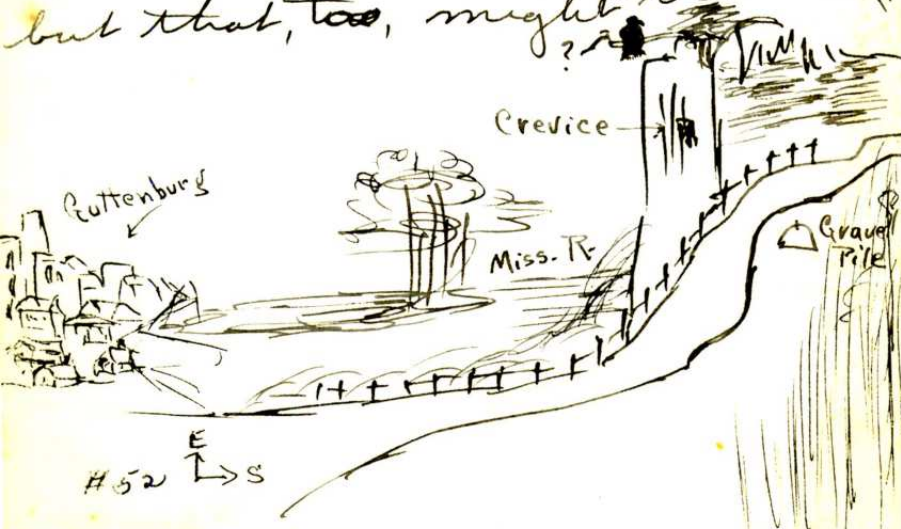 but that, too, might
?
Crevice
Guttenburg
Miss. R.
Gravel
Pile
E
S
#52